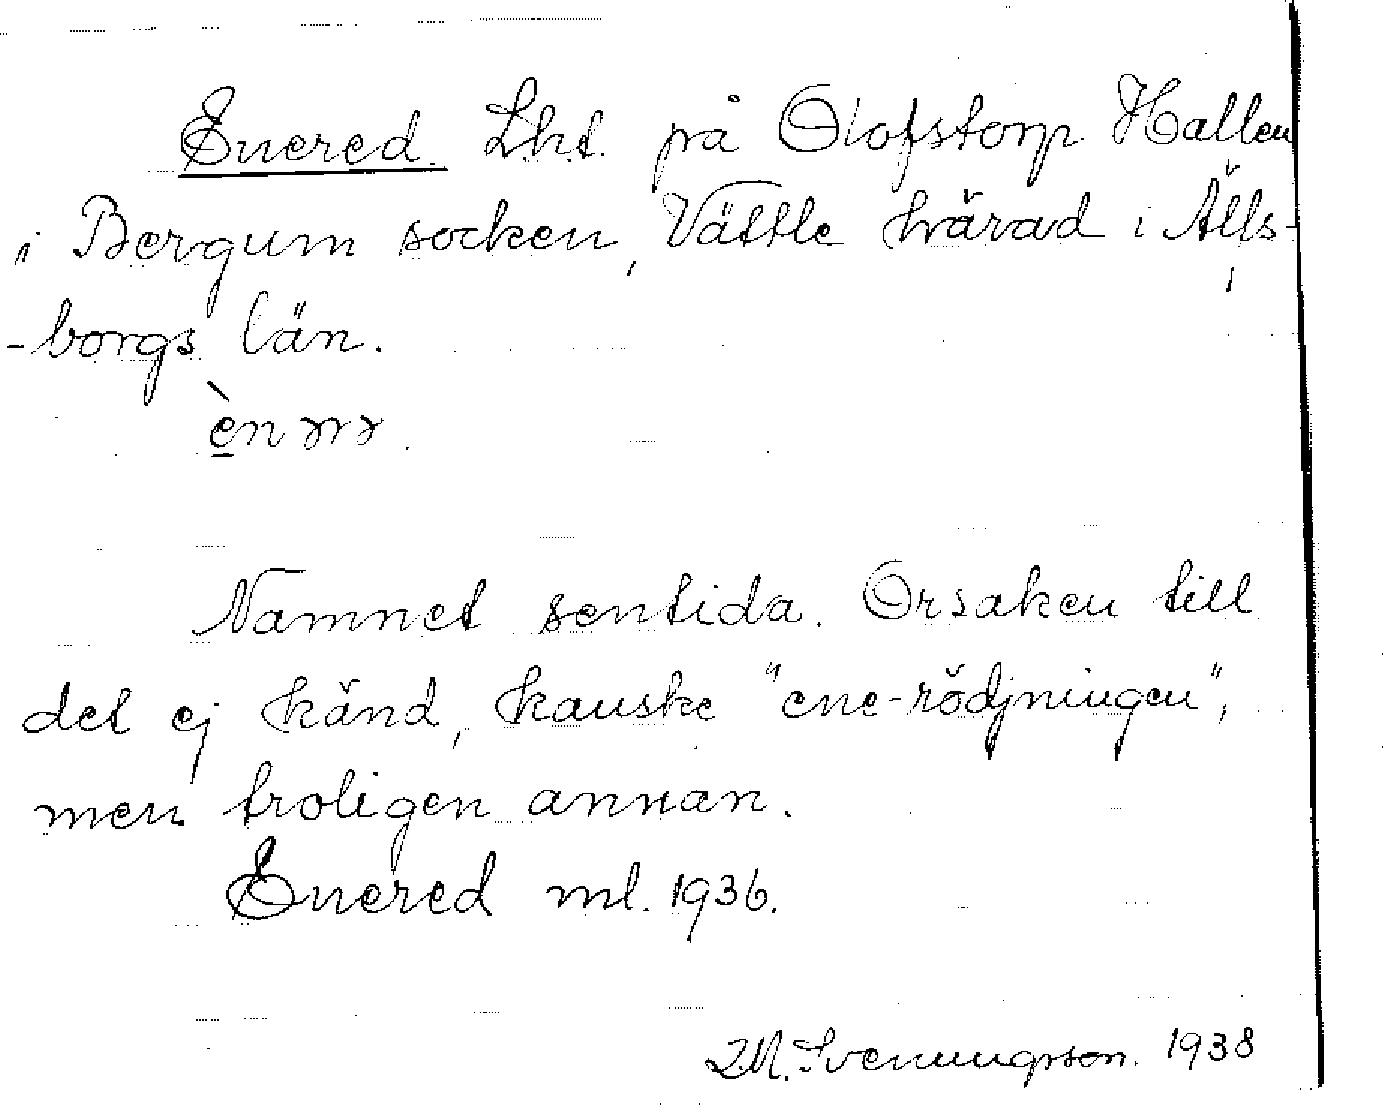 Enered. Lht. på Olofstorp Hallen
i Bergum socken, Vättle härad i Älfs-
-borgs län.
Namnet sentida. Orsaken till
det ej känd, kanske "ene-rödjningen",
men troligen annan.
Enered ml. 1936.
Svenungsson. 1938